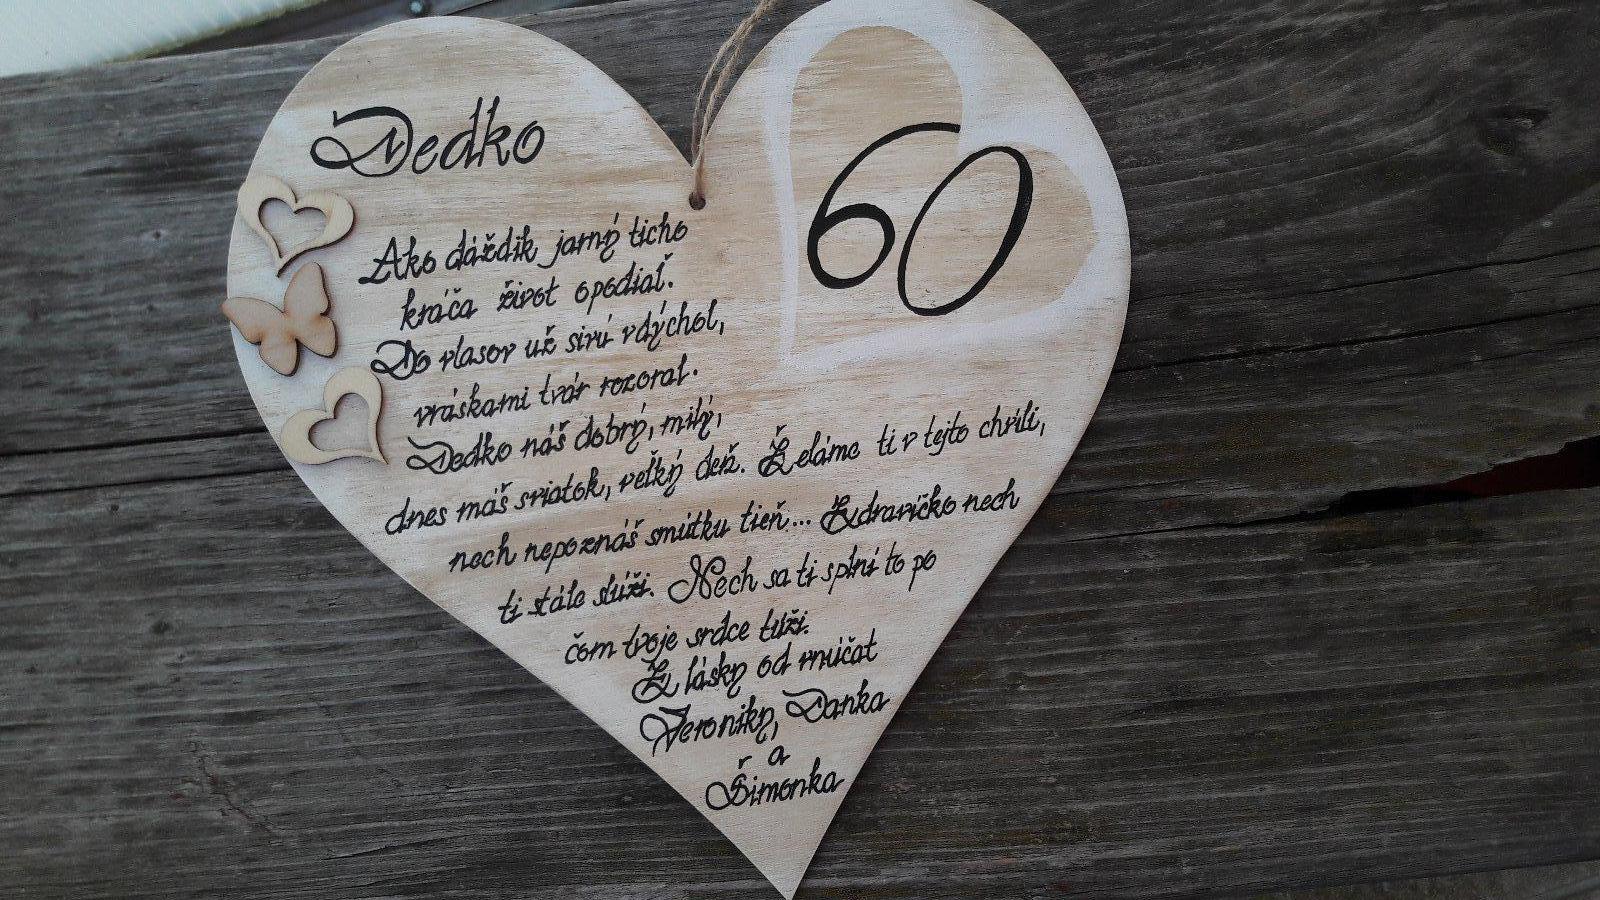 Dedko
60
Ako dáždik jarný ticho
kráča život opodiaľ.
Do vlasov už sivú vdýchol,
vráskami tvár rozoral.
Dedko náš dobrý, milý,
dnes máš sviatok, veľký deň. Želáme ti v tejto chvíli,
nech nepoznáš smútku tieň... Zdravíčko nech
ti stále slúži. Nech sa ti splní to po
čom tvoje srdce túži.
Z lásky od vnúčat
Veroniky, Danka
a
Šimonka